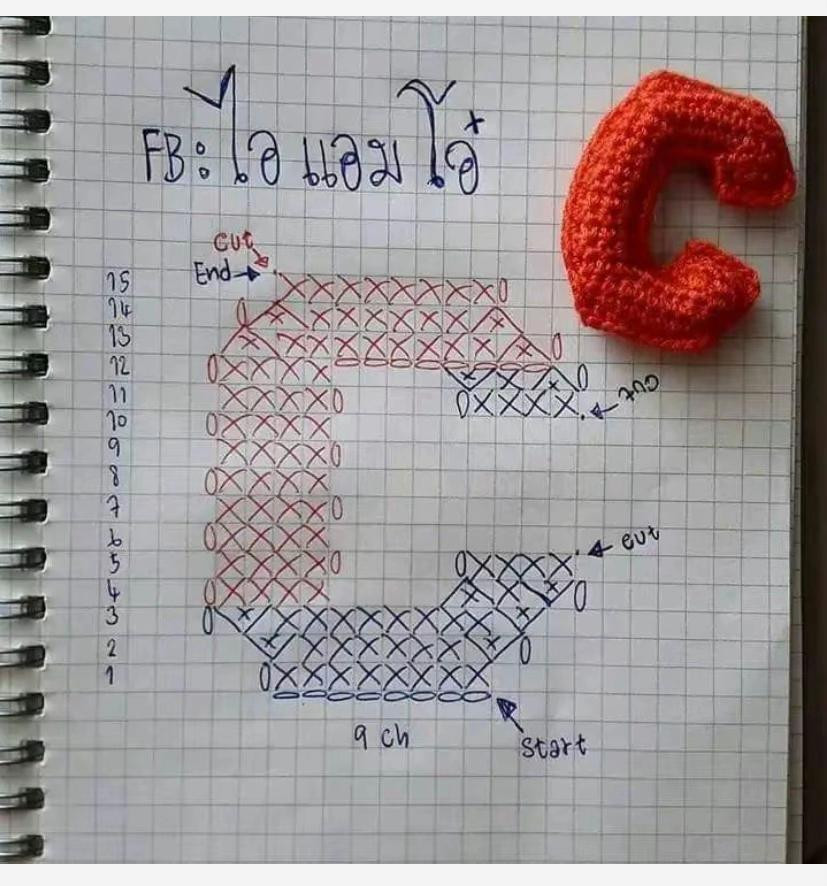 FB: ไอ แอม โอ๋
cut
End
15
14
13
12
11
10
9
8
7
6
5
4
3
2
1
cut
cut
9 ch
start